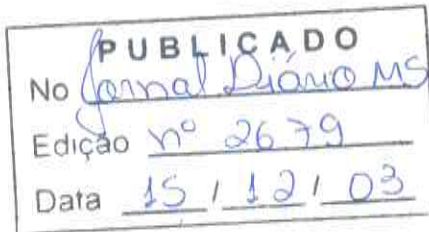 PUBLICADO
No Jornal Diário MS
Edição nº 2679
Data 15 / 12 / 03